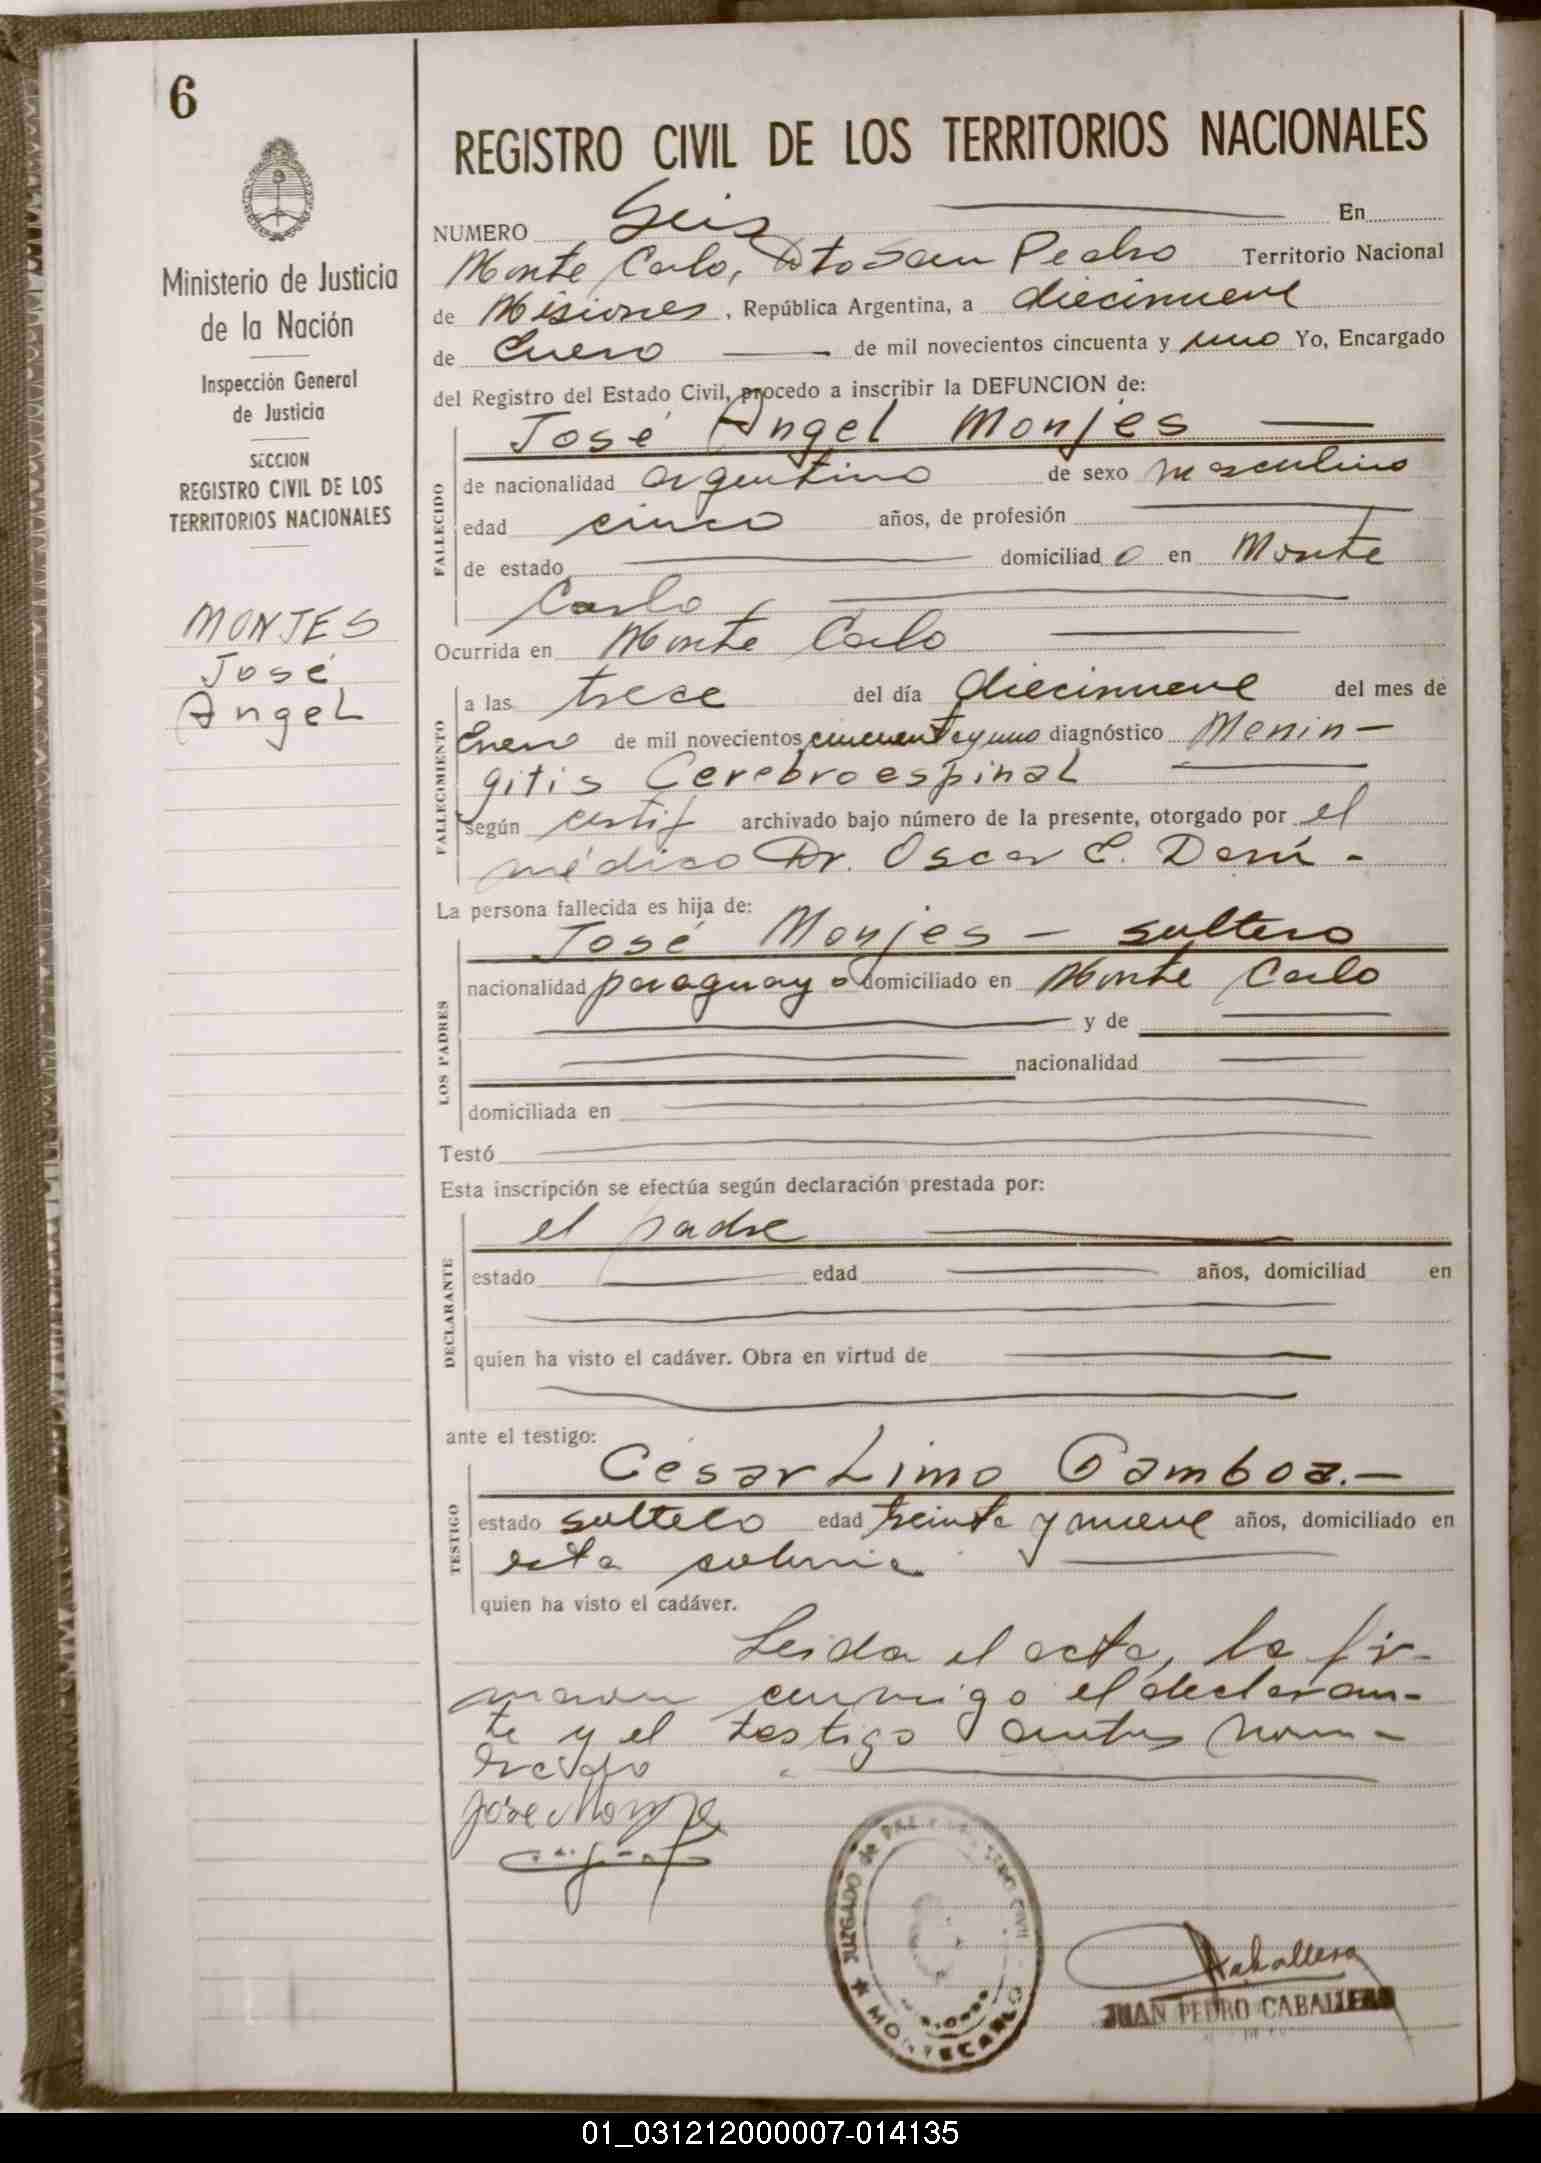 6
Ministerio de Justicia
de la Nación
Inspección General
de Justicia
SECCION
REGISTRO CIVIL DE LOS
TERRITORIOS NACIONALES
MONJES
José
Angel
REGISTRO CIVIL DE LOS TERRITORIOS NACIONALES
NUMERO Seis En
Monte Carlo, Dto San Pedro Territorio Nacional
de Misiones, República Argentina, a diecinueve
de Enero de mil novecientos cincuenta y uno Yo, Encargado
del Registro del Estado Civil, procedo a inscribir la DEFUNCION de:
José Angel Monjes
FALLECIDO
de nacionalidad argentino de sexo masculino
edad cinco años, de profesión
de estado domiciliado en Monte
Carlo
Ocurrida en Monte Carlo
FALLECIMIENTO
a las trece del día diecinueve del mes de
Enero de mil novecientos cincuenta y uno diagnóstico Menin-
gitis Cerebroespinal
según certif archivado bajo número de la presente, otorgado por el
médico Dr. Oscar E.
La persona fallecida es hija de:
LOS PADRES
José Monjes - soltero
nacionalidad paraguayo domiciliado en Monte Carlo
y de
nacionalidad
domiciliada en
Testó
Esta inscripción se efectúa según declaración prestada por:
DECLARANTE
el padre
estado edad años, domiciliad en
quien ha visto el cadáver. Obra en virtud de
ante el testigo:
TESTIGO
César Limo Gamboa.-
estado soltero edad treinta y nueve años, domiciliado en
esta colonia
quien ha visto el cadáver.
Leida el acta, la fir-
maron conmigo el declaran-
te y el testigo antes nom-
brado
José Monje
JUZGADO de PAZ
MONTECARLO
Caballero
JUAN PEDRO CABALLERO
01_031212000007-014135